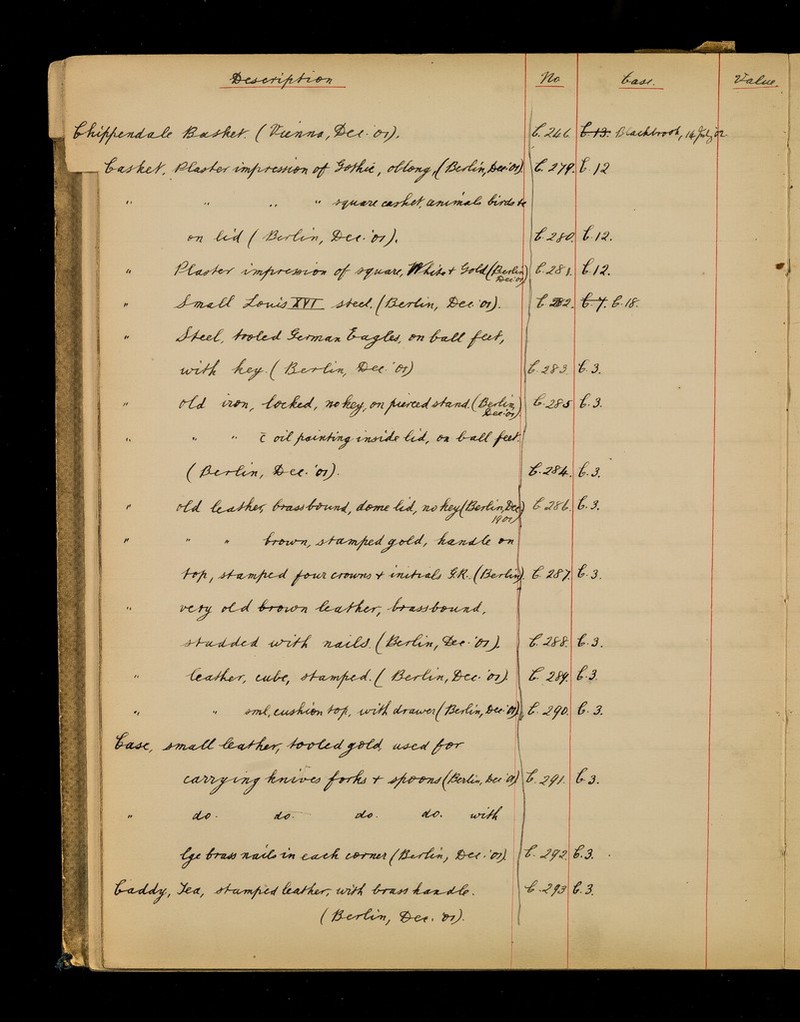 Description No Case. Value.
Chippendale Basket. (Vienna, Dec. 01). C.266 C.13. Blackbrook, 14 July '02
Casket, Plaster impression of Gothic, oblong, (Berlin, Dec '01) C. 279. C. 12
" " " " square casket, animals birds &c
on lid (Berlin, Dec. '01). C. 280. C. 12.
" Plaster impression of square, White + Gold (Berlin Dec 01) C. 281. C. 12.
" Small Louis XVI steel. (Berlin, Dec '01). C. 282. C. 7. C. 18.
" Steel, tooled German Eagles, on ball feet,
with key. (Berlin, Dec. '01) C. 283. C. 3.
" old iron, locked, no key, on pierced stand. (Berlin Dec '01) C. 285 C. 3.
" " " c̄ oil painting inside lid, on ball feet.
(Berlin, Dec. '01). C. 284. C. 3.
" old leather, brassbound, dome lid, no key (Berlin, Dec 1901) C. 286. C. 3.
" " " brown, stamped gold, handle on
top, stamped four crowns + initials G.R. (Berlin). C. 287. C. 3.
" very old brown leather, brassbound,
studded with nails. (Berlin, Dec. '01). C. 288. C. 3.
" leather, cube, stamped. (Berlin, Dec. '01). C. 289. C. 3.
" " sml, cushion top, with drawer (Berlin, Dec '01), C. 290. C. 3.
Case, small leather, tooled gold, used for
carrying knives forks + spoons (Berlin, Dec '01) C. 291. C. 3.
" do. do. do. do. with
lge brass nails in each corner (Berlin, Dec. '01). C. 292. C. 3.
Caddy, Tea, stamped leather, with brass handle. C. 293 C. 3.
(Berlin, Dec. '01).